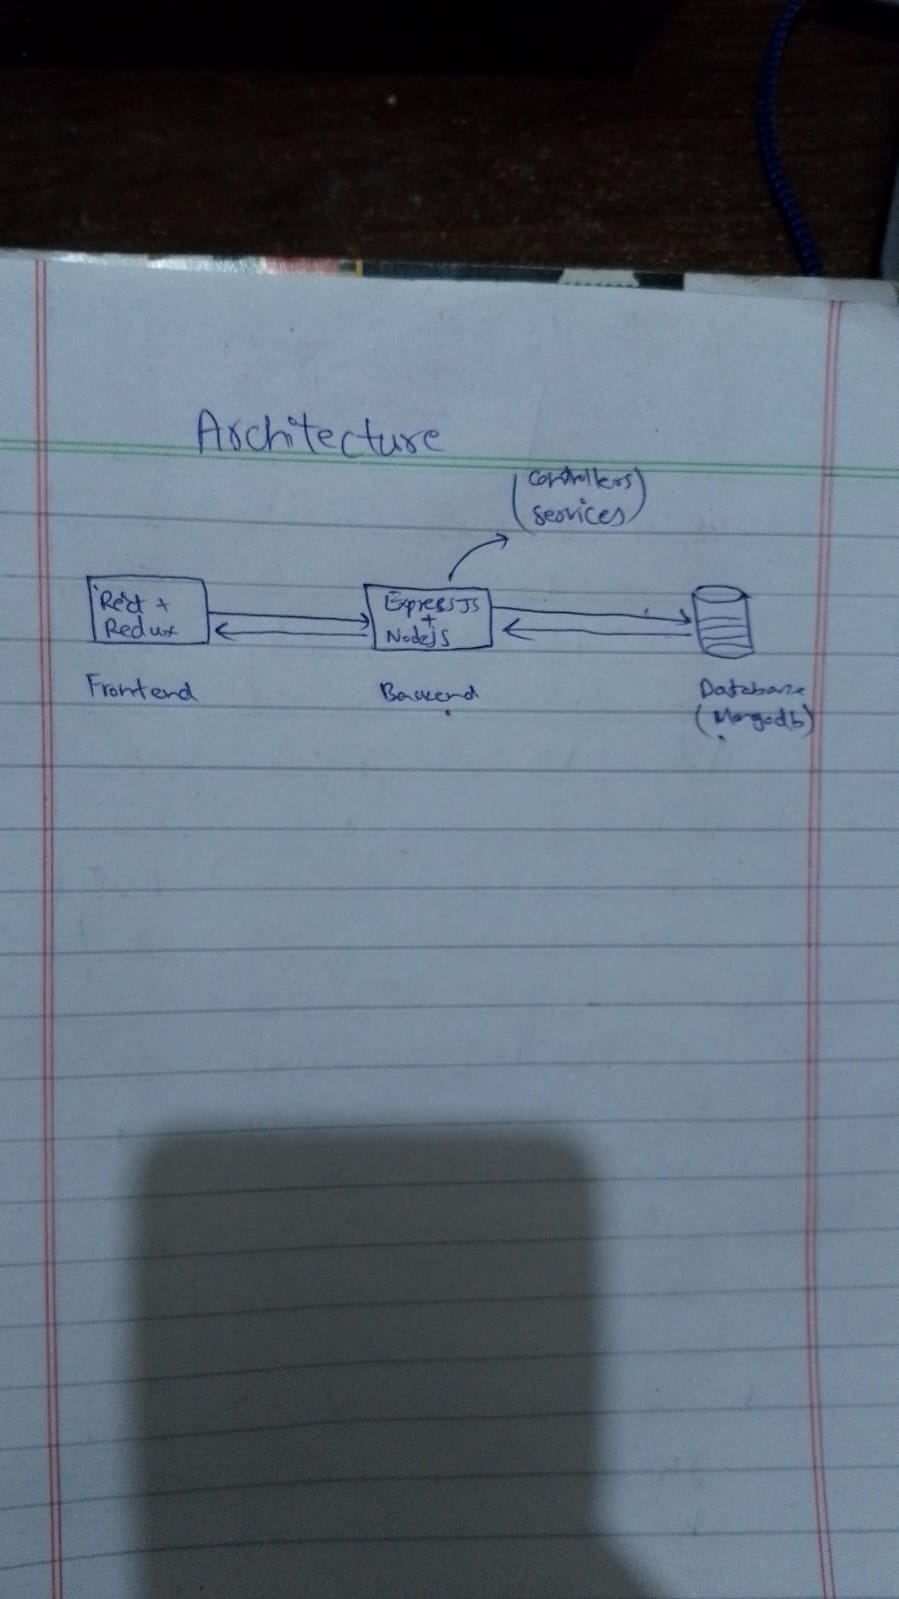 Architecture
(controllers
services)
React +
Redux
ExpressJS
+
Nodejs
Frontend
Backend
Database
(Mongodb)